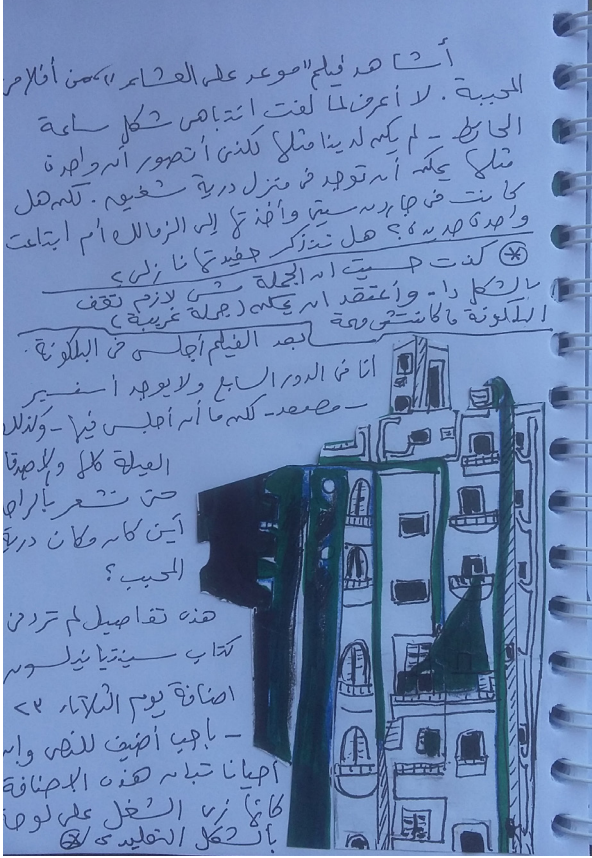 أشاهد فيلم "موعد على العشاء"، من أفلامي
المحببة. لا أعرف لما لفت انتباهي شكل ساعة
الحائط - لم يكن لدينا مثلها لكني أتصور أن واحدة
مثلها يمكن أن توجد في منزل درية شفيق. لكن هل
كانت في جاردن سيتي وأخذتها إلى الزمالك أم ابتاعت
واحدة جديدة؟ هل تتذكر حفيدتها نازلي؟
* كنت حسيت ان الجملة مش لازم تقف
بالشكل دا - وأعتقد ان يمكن (جملة غريبة)
البلكونة ماكانتش مهمة
بعد الفيلم أجلس في البلكونة.
أنا في الدور السابع ولا يوجد أسنسير
- مصعد - لكن ما أن أجلس فيها - وكذلك
العيلة كلها والأصدقاء
حتى نشعر بالراحة
أين كان مكان درية
المحبب؟
هذه تفاصيل لم ترد في
كتاب سينثيا نيلسون
اضافة يوم الثلاثاء ٢٣
- بأحب أضيف للنص وان
أحيانا تبان هذه الاضافة
كانها زي الشغل على لوحة
بالشكل التقليدي *